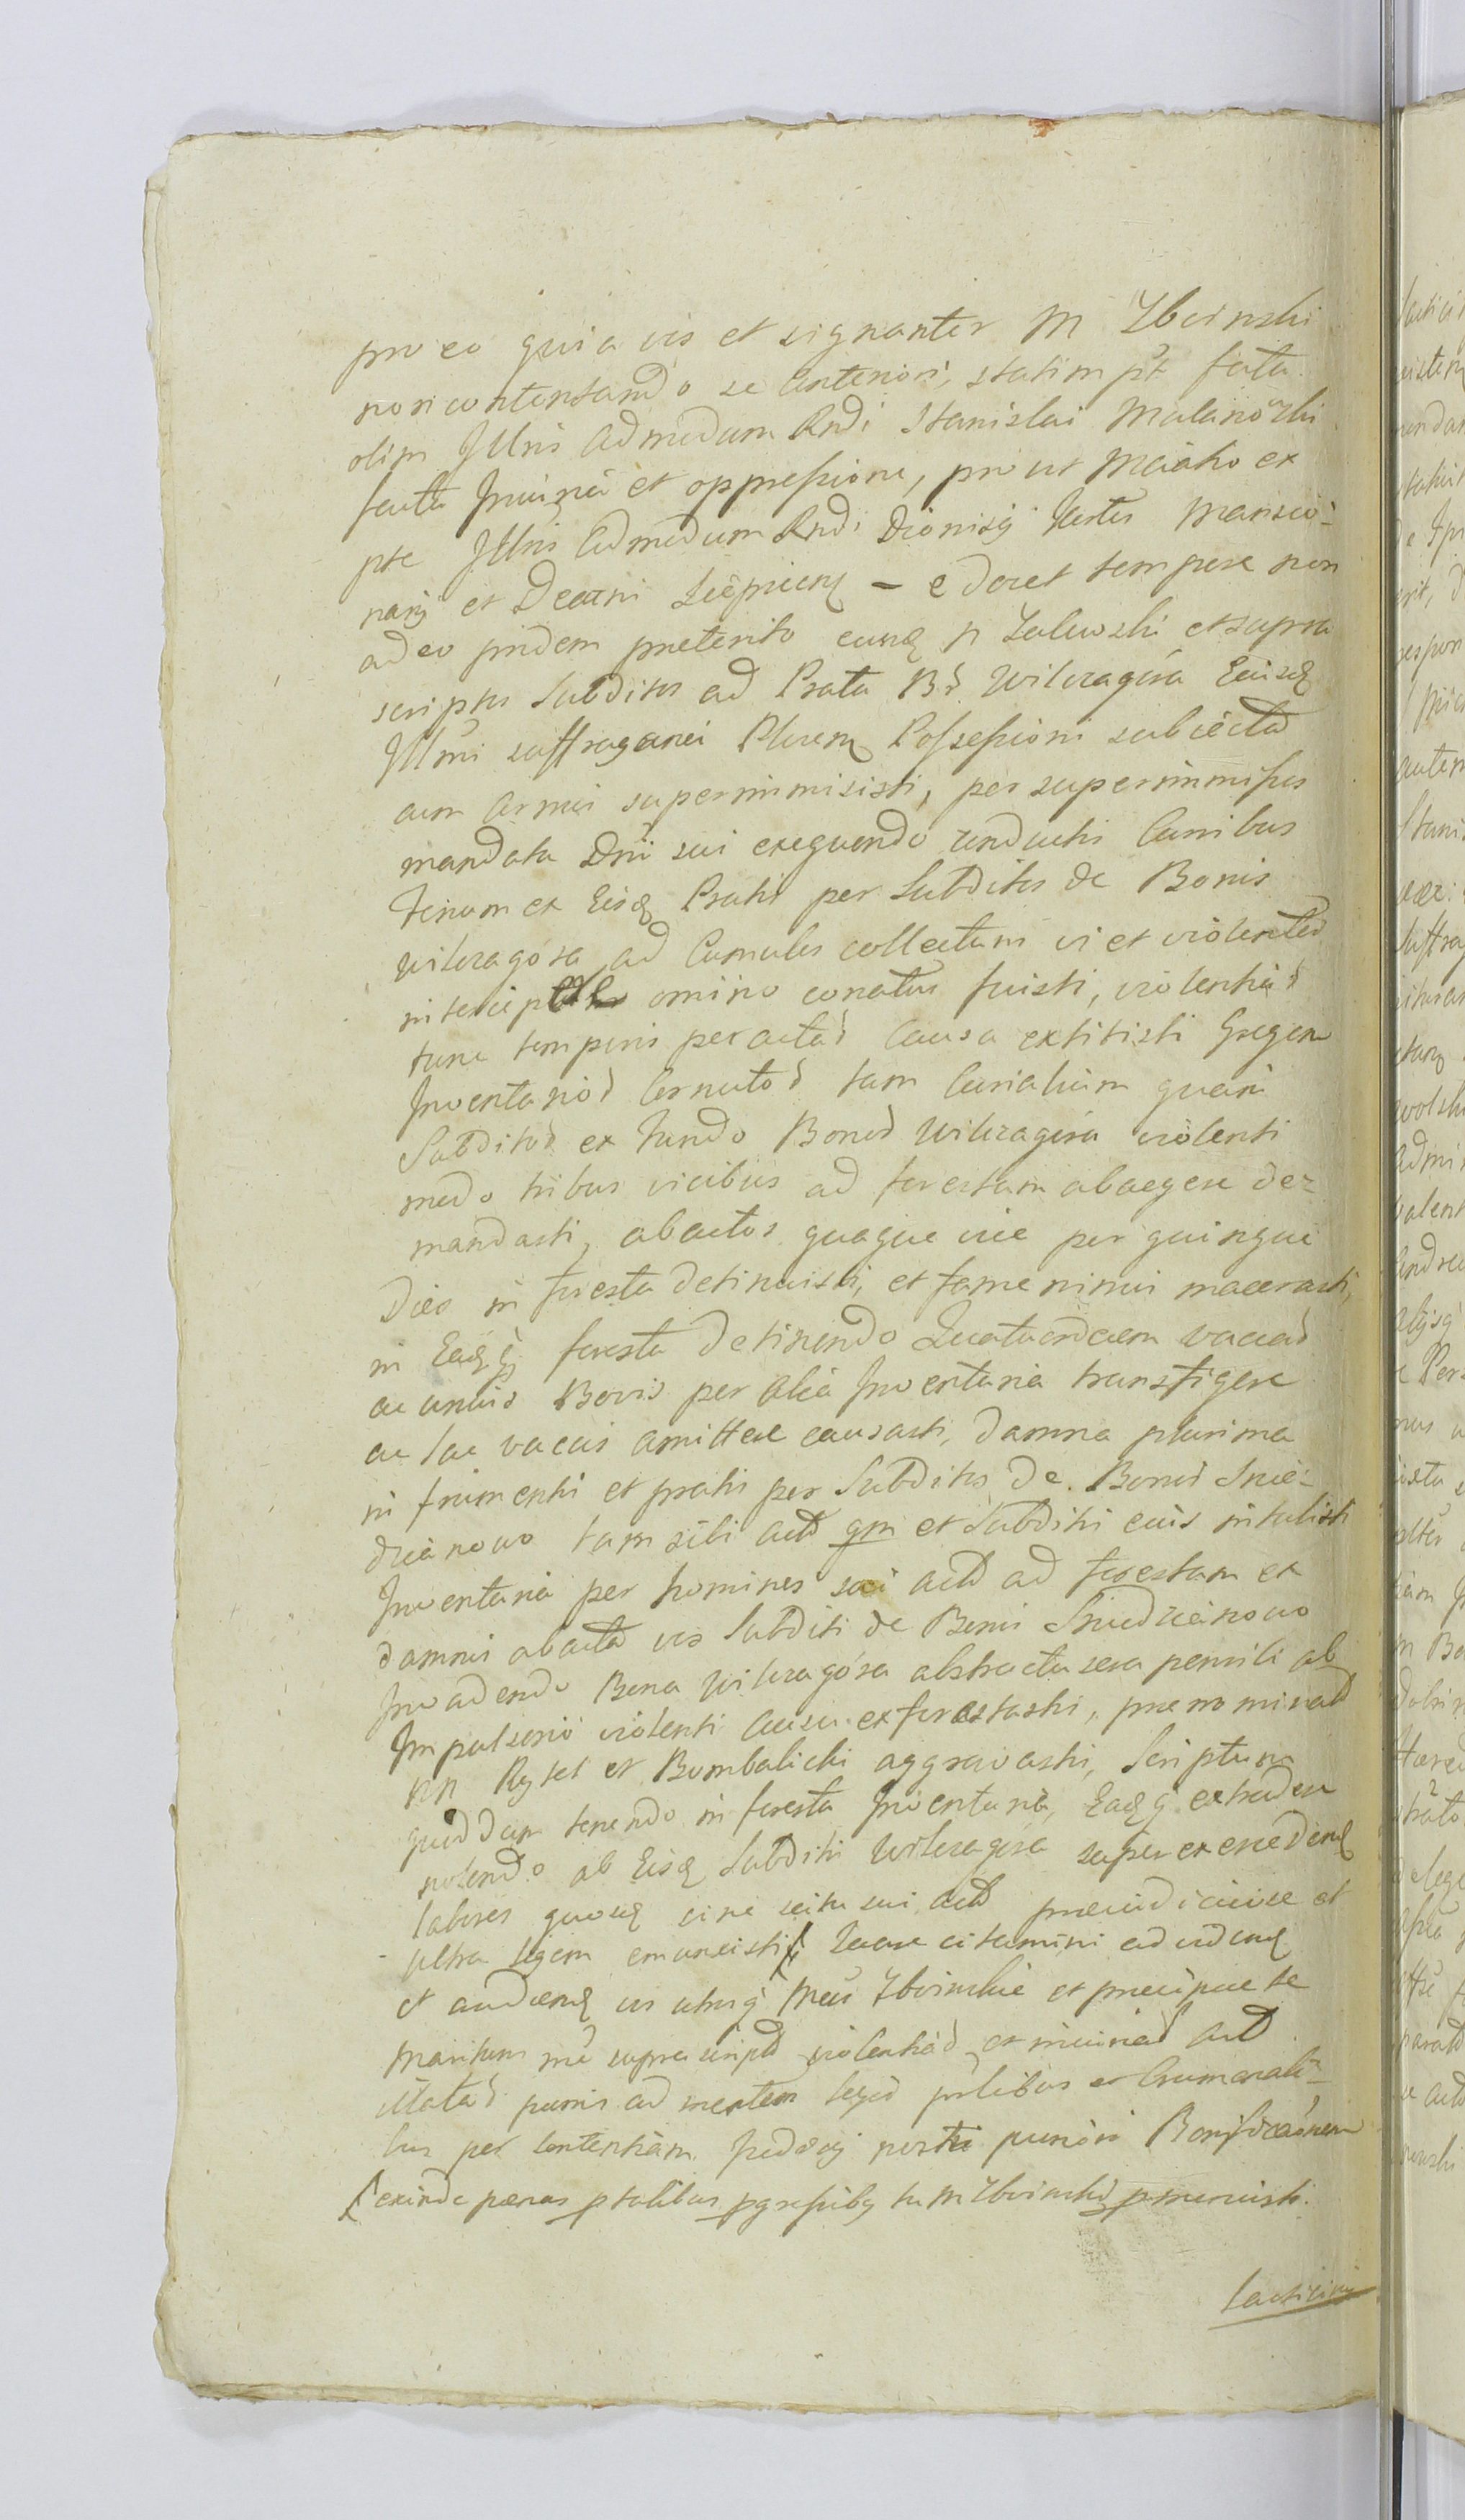 pro eo quia vos et signanter M Zboinski
non contentando se anteriori, statim pt fata
olim Illris Admodum Rndi Stanislai Malanoski
facta Iniuria et oppressione, prout Maiatio ex
pte Illris Admodum Rndi Dionisÿ Mansio-
narÿ et Decani edocet tempore non
adeo pridem præterito eund p Zalewski et supra
scriptos Subditos ad Prata Br Wilczagóra Eiusd
Illmi suffraganei Plocen Possessioni subiecta
cum Armis superimmisisti, per superimmissos
mandata Dni sui exequendo conductis Curribus
Fenum ex Eisd Pratis per Subditos de Bonis
Wilczagóra ad Cumulos collectum vi et violenter
omino conatus fuisti, violentiar
tunc temporis peractar Causa extitisti Gregem
Inventarior Cornutor tam Curialium quam
Subditor ex Fundo Bonor Wilczagóra violenti
modo tribus vicibus ad forestam abaegere de-
mandasti, abactos quaque vice per quinque
Dies in foresta detinuisti, et fame nimis macerasti,
in Eadq foresta detinendo Quatuordecem vaccas
ac unius Bovis per alia Inventaria transfigere
ac lac vaccis amittere causasti, damna plurima
in frumentis et pratis per Subditos de Bonis Snie-
dzianowo tam sibi Act qm et Subditis eius intulisti
Inventaria per homines sui act ad forestam ex
damnis abacta vos Subditi de Bonis Sniedzianowo
Invadendo Bona Wilczagóra abstracta sera pensili ab
Impulsorio violenti ausu exforestasti, prænominat
NN Rytel et Bombalicki aggravasti, Scriptum
quoddam tenendo in foresta Inventaria, Eadq extradere
nolendo ab Eisd Subditis Wilczagóra superexceden
labores quosd sine scitu sui act præiudiciose et
ultra legem emunxisti citamini ad viden
et audien vos utrq Mci Zboinskie et præcipue te
Maritum suprascript violentiar et iniuriar Act
illatar pœnis ad mentem legis plibus et Criminali-
bus per Sententiam Judicÿ nostri puniri Bonificaonem
exinde pœnas p talibus pgressibq tu M Zboinski pmeruisti.
lacticinÿ